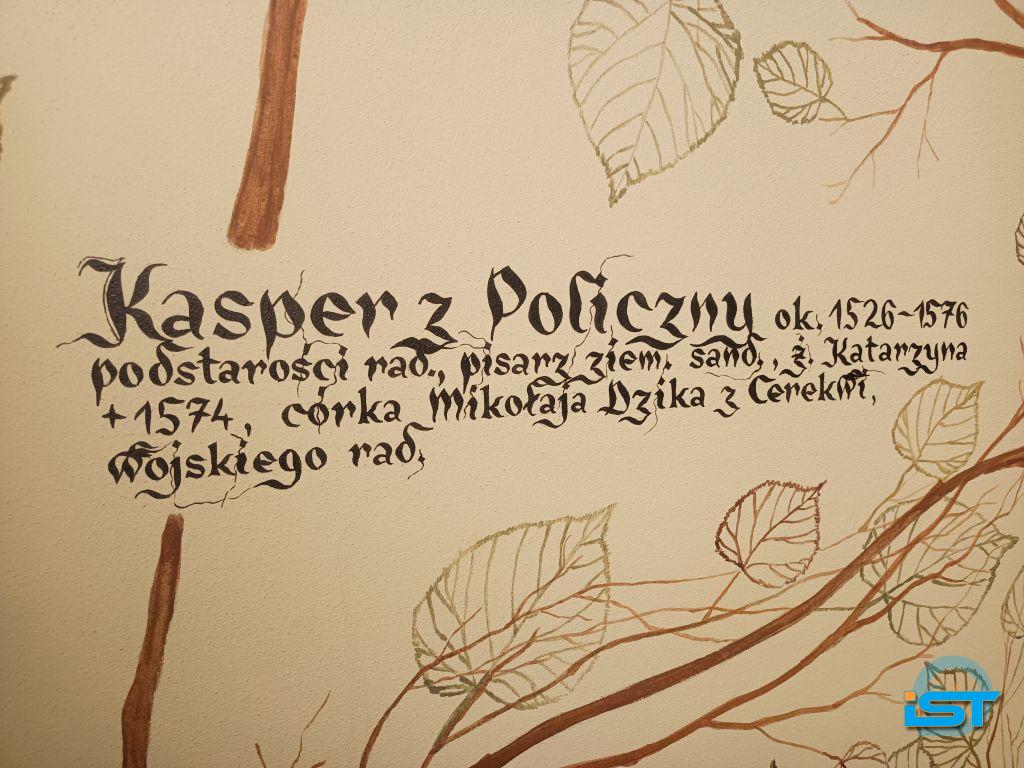 Kasper z Policzny ok. 1526-1576
podstarości rad., pisarz ziem. sand., ż. Katarzyna
+ 1574, córka Mikołaja Dzika z Cerekwi,
wojskiego rad.
iST